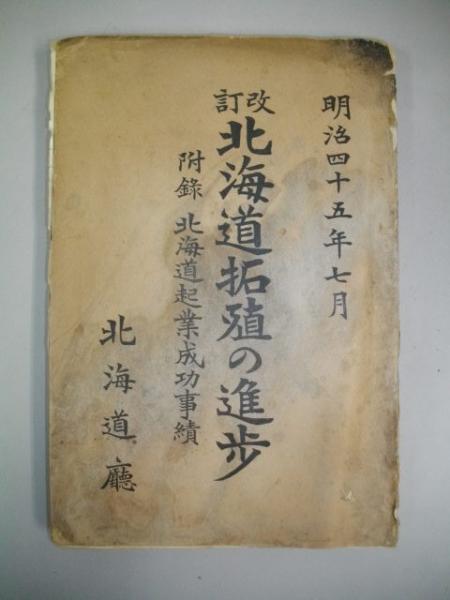 明治四十五年七月
改訂
北海道拓殖の進歩
附錄 北海道起業成功事績
北海道廳